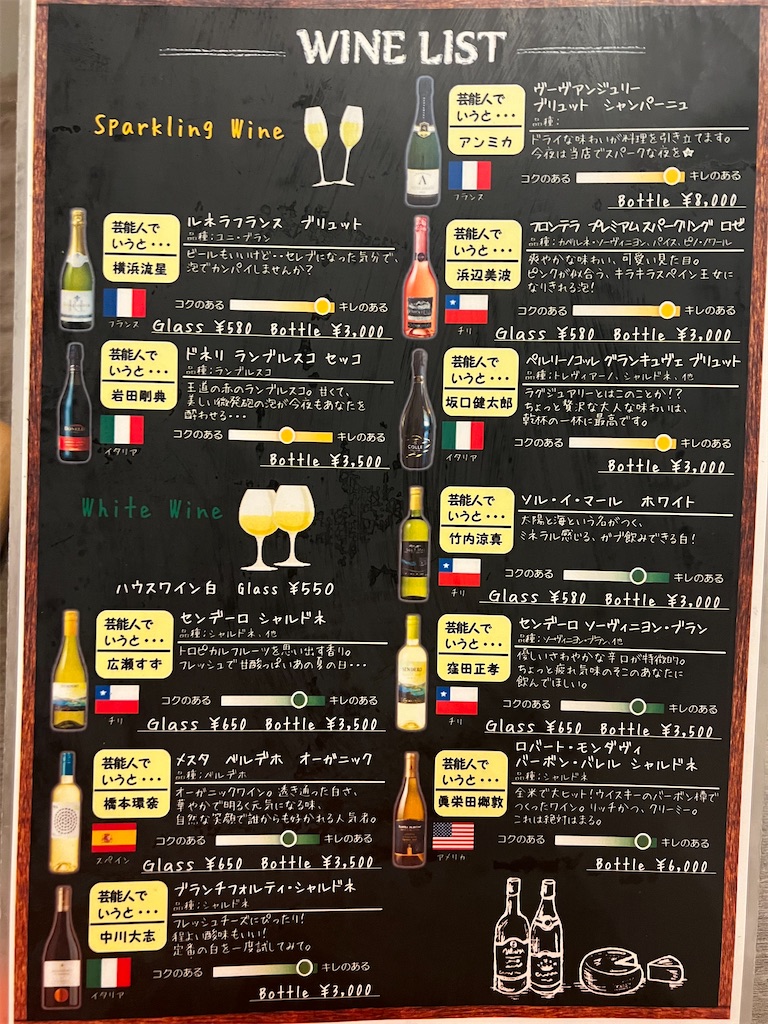 WINE LIST
Sparkling Wine
芸能人で
いうと・・・
アンミカ
ヴーヴアンジュリー
ブリュット シャンパーニュ
品種：
ドライな味わいが料理を引き立てます。
今夜は当店でスパークな夜を★
フランス
コクのある キレのある
Bottle ¥8,000
芸能人で
いうと・・・
横浜流星
ルネラフランス ブリュット
品種：ユニ・ブラン
ビールもいいけど・・セレブになった気分で、
泡でカンパイしませんか？
フランス
コクのある キレのある
Glass ¥580 Bottle ¥3,000
芸能人で
いうと・・・
浜辺美波
フロンテラ プレミアムスパークリング ロゼ
品種：カベルネ・ソーヴィニヨン、パイス、ピノ・ノワール
爽やかな味わい、可愛い見た目。
ピンクが似合う、キラキラスペイン王女に
なりきれる泡！
チリ
コクのある キレのある
Glass ¥580 Bottle ¥3,000
芸能人で
いうと・・・
岩田剛典
ドネリ ランブルスコ セッコ
品種：ランブルスコ
王道の赤のランブルスコ。甘くて、
美しい微発砲の泡が今夜もあなたを
酔わせる・・・
イタリア
コクのある キレのある
Bottle ¥3,500
芸能人で
いうと・・・
坂口健太郎
ペルリーノコッル グランキュヴェ ブリュット
品種：トレヴィアーノ、シャルドネ、他
ラグジュアリーとはこのことか！？
ちょっと贅沢な大人な味わいは、
乾杯の一杯に最高です。
イタリア
コクのある キレのある
Bottle ¥3,000
White Wine
ハウスワイン白 Glass ¥550
芸能人で
いうと・・・
竹内涼真
ソル・イ・マール ホワイト
太陽と海という名がつく、
ミネラル感じる、ガブ飲みできる白！
チリ
コクのある キレのある
Glass ¥580 Bottle ¥3,000
芸能人で
いうと・・・
広瀬すず
センデーロ シャルドネ
品種：シャルドネ、他
トロピカルフルーツを思い出す香り。
フレッシュで甘酸っぱいあの夏の日・・・
チリ
コクのある キレのある
Glass ¥650 Bottle ¥3,500
芸能人で
いうと・・・
窪田正孝
センデーロ ソーヴィニヨン・ブラン
品種：ソーヴィニヨン・ブラン、他
優しいさわやかな辛口が特徴的。
ちょっと疲れ気味のそこのあなたに
飲んでほしい。
チリ
コクのある キレのある
Glass ¥650 Bottle ¥3,500
芸能人で
いうと・・・
橋本環奈
メスタ ベルデホ オーガニック
品種：ベルデホ
オーガニックワイン。透き通った白さ、
華やかで明るく元気になる味、
自然な笑顔で誰からも好かれる人気者。
スペイン
コクのある キレのある
Glass ¥650 Bottle ¥3,500
芸能人で
いうと・・・
眞栄田郷敦
ロバート・モンダヴィ
バーボン・バレル シャルドネ
品種：シャルドネ
全米で大ヒット！ウイスキーのバーボン樽で
つくったワイン。リッチかつ、クリーミー。
これは絶対はまる。
アメリカ
コクのある キレのある
Bottle ¥6,000
芸能人で
いうと・・・
中川大志
ブランチフォルティ・シャルドネ
品種：シャルドネ
フレッシュチーズにぴったり！
程よい酸味もいい！
定番の白を一度試してみて。
イタリア
コクのある キレのある
Bottle ¥3,000